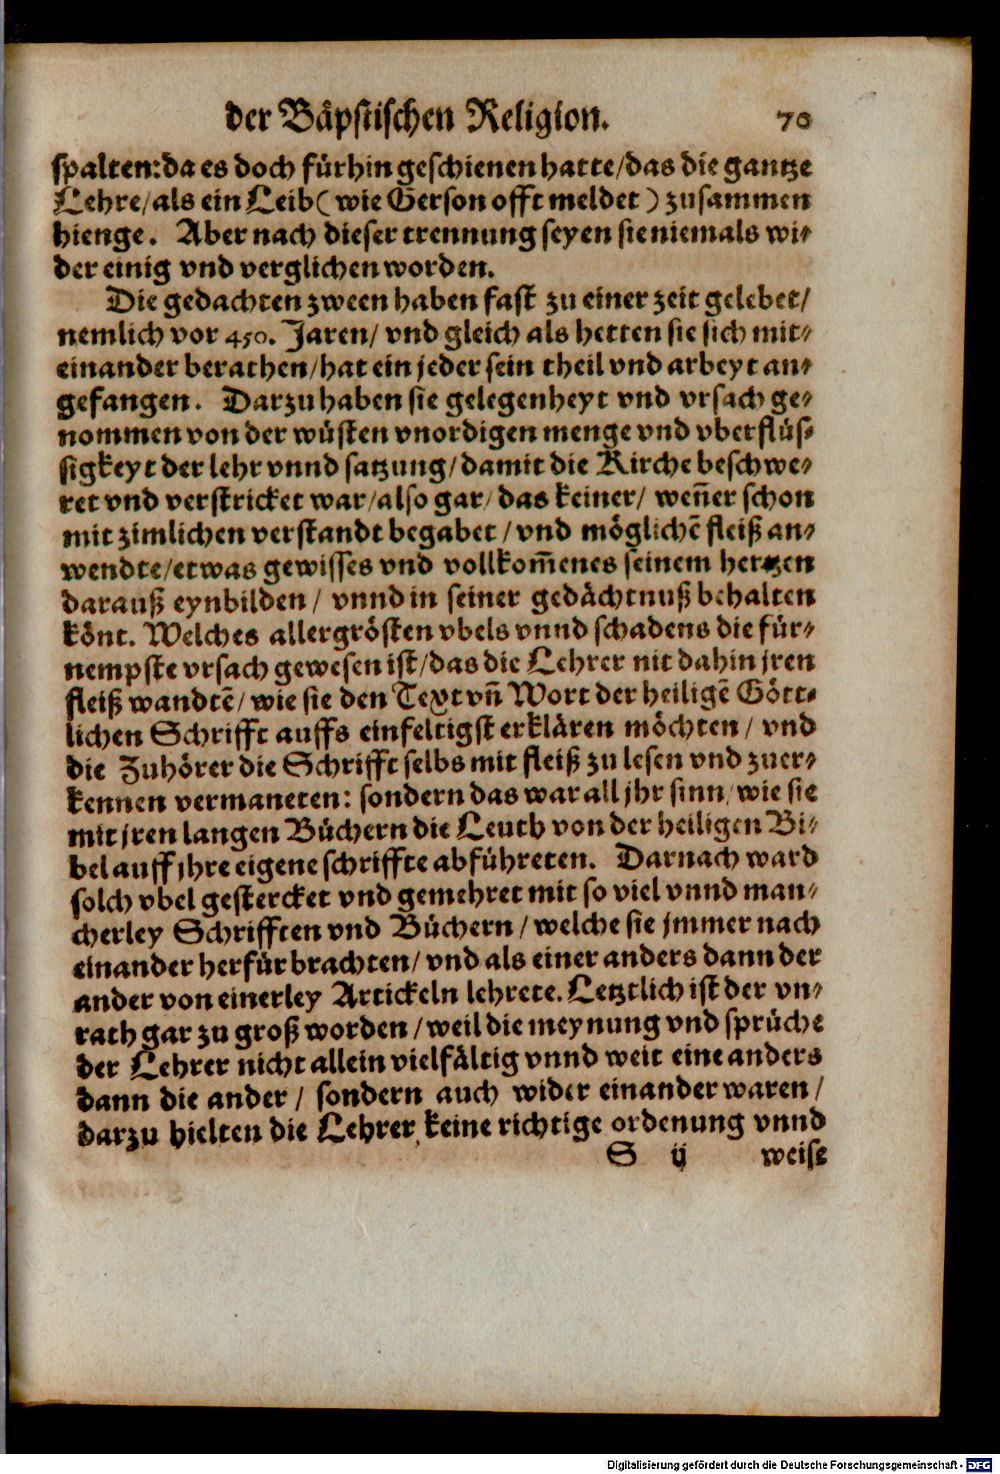 der Bäpstischen Religion. 70
spalten: da es doch fürhin geschienen hatte/das die gantze
Lehre/als ein Leib (wie Gerson offt meldet) zusammen
hienge. Aber nach dieser trennung seyen sie niemals wi-
der einig vnd verglichen worden.
Die gedachten zween haben fast zu einer zeit gelebet/
nemlich vor 450. Jaren/ vnd gleich als hetten sie sich mit-
einander berathen/hat ein jeder sein theil vnd arbeyt an-
gefangen. Darzu haben sie gelegenheyt vnd vrsach ge-
nommen von der wüsten vnordigen menge vnd vberflüs-
sigkeyt der lehr vnnd satzung/damit die Kirche beschwe-
ret vnd verstricket war/also gar/das keiner/ weñ er schon
mit zimlichen verstandt begabet/vnd möglichē fleiß an-
wendte/etwas gewisses vnd vollkom̃enes seinem hertzen
darauß eynbilden/ vnnd in seiner gedächtnuß behalten
könt. Welches allergrösten vbels vnnd schadens die für-
nempste vrsach gewesen ist/das die Lehrer nit dahin jren
fleiß wandtē/wie sie den Text vñ Wort der heiligē Gött-
lichen Schrifft auffs einfeltigst erklären möchten/ vnd
die Zuhörer die Schrifft selbs mit fleiß zu lesen vnd zuer-
kennen vermaneten: sondern das war all jhr sinn/wie sie
mit jren langen Büchern die Leuth von der heiligen Bi-
bel auff jhre eigene schriffte abführeten. Darnach ward
solch vbel gestercket vnd gemehret mit so viel vnnd man-
cherley Schrifften vnd Büchern/welche sie jmmer nach
einander herfür brachten/vnd als einer anders dann der
ander von einerley Artickeln lehrete. Letztlich ist der vn-
rath gar zu groß worden/weil die meynung vnd sprüche
der Lehrer nicht allein vielfältig vnnd weit eine anders
dann die ander/ sondern auch wider einander waren/
darzu hielten die Lehrer keine richtige ordenung vnnd
S ij weise
Digitalisierung gefördert durch die Deutsche Forschungsgemeinschaft - DFG